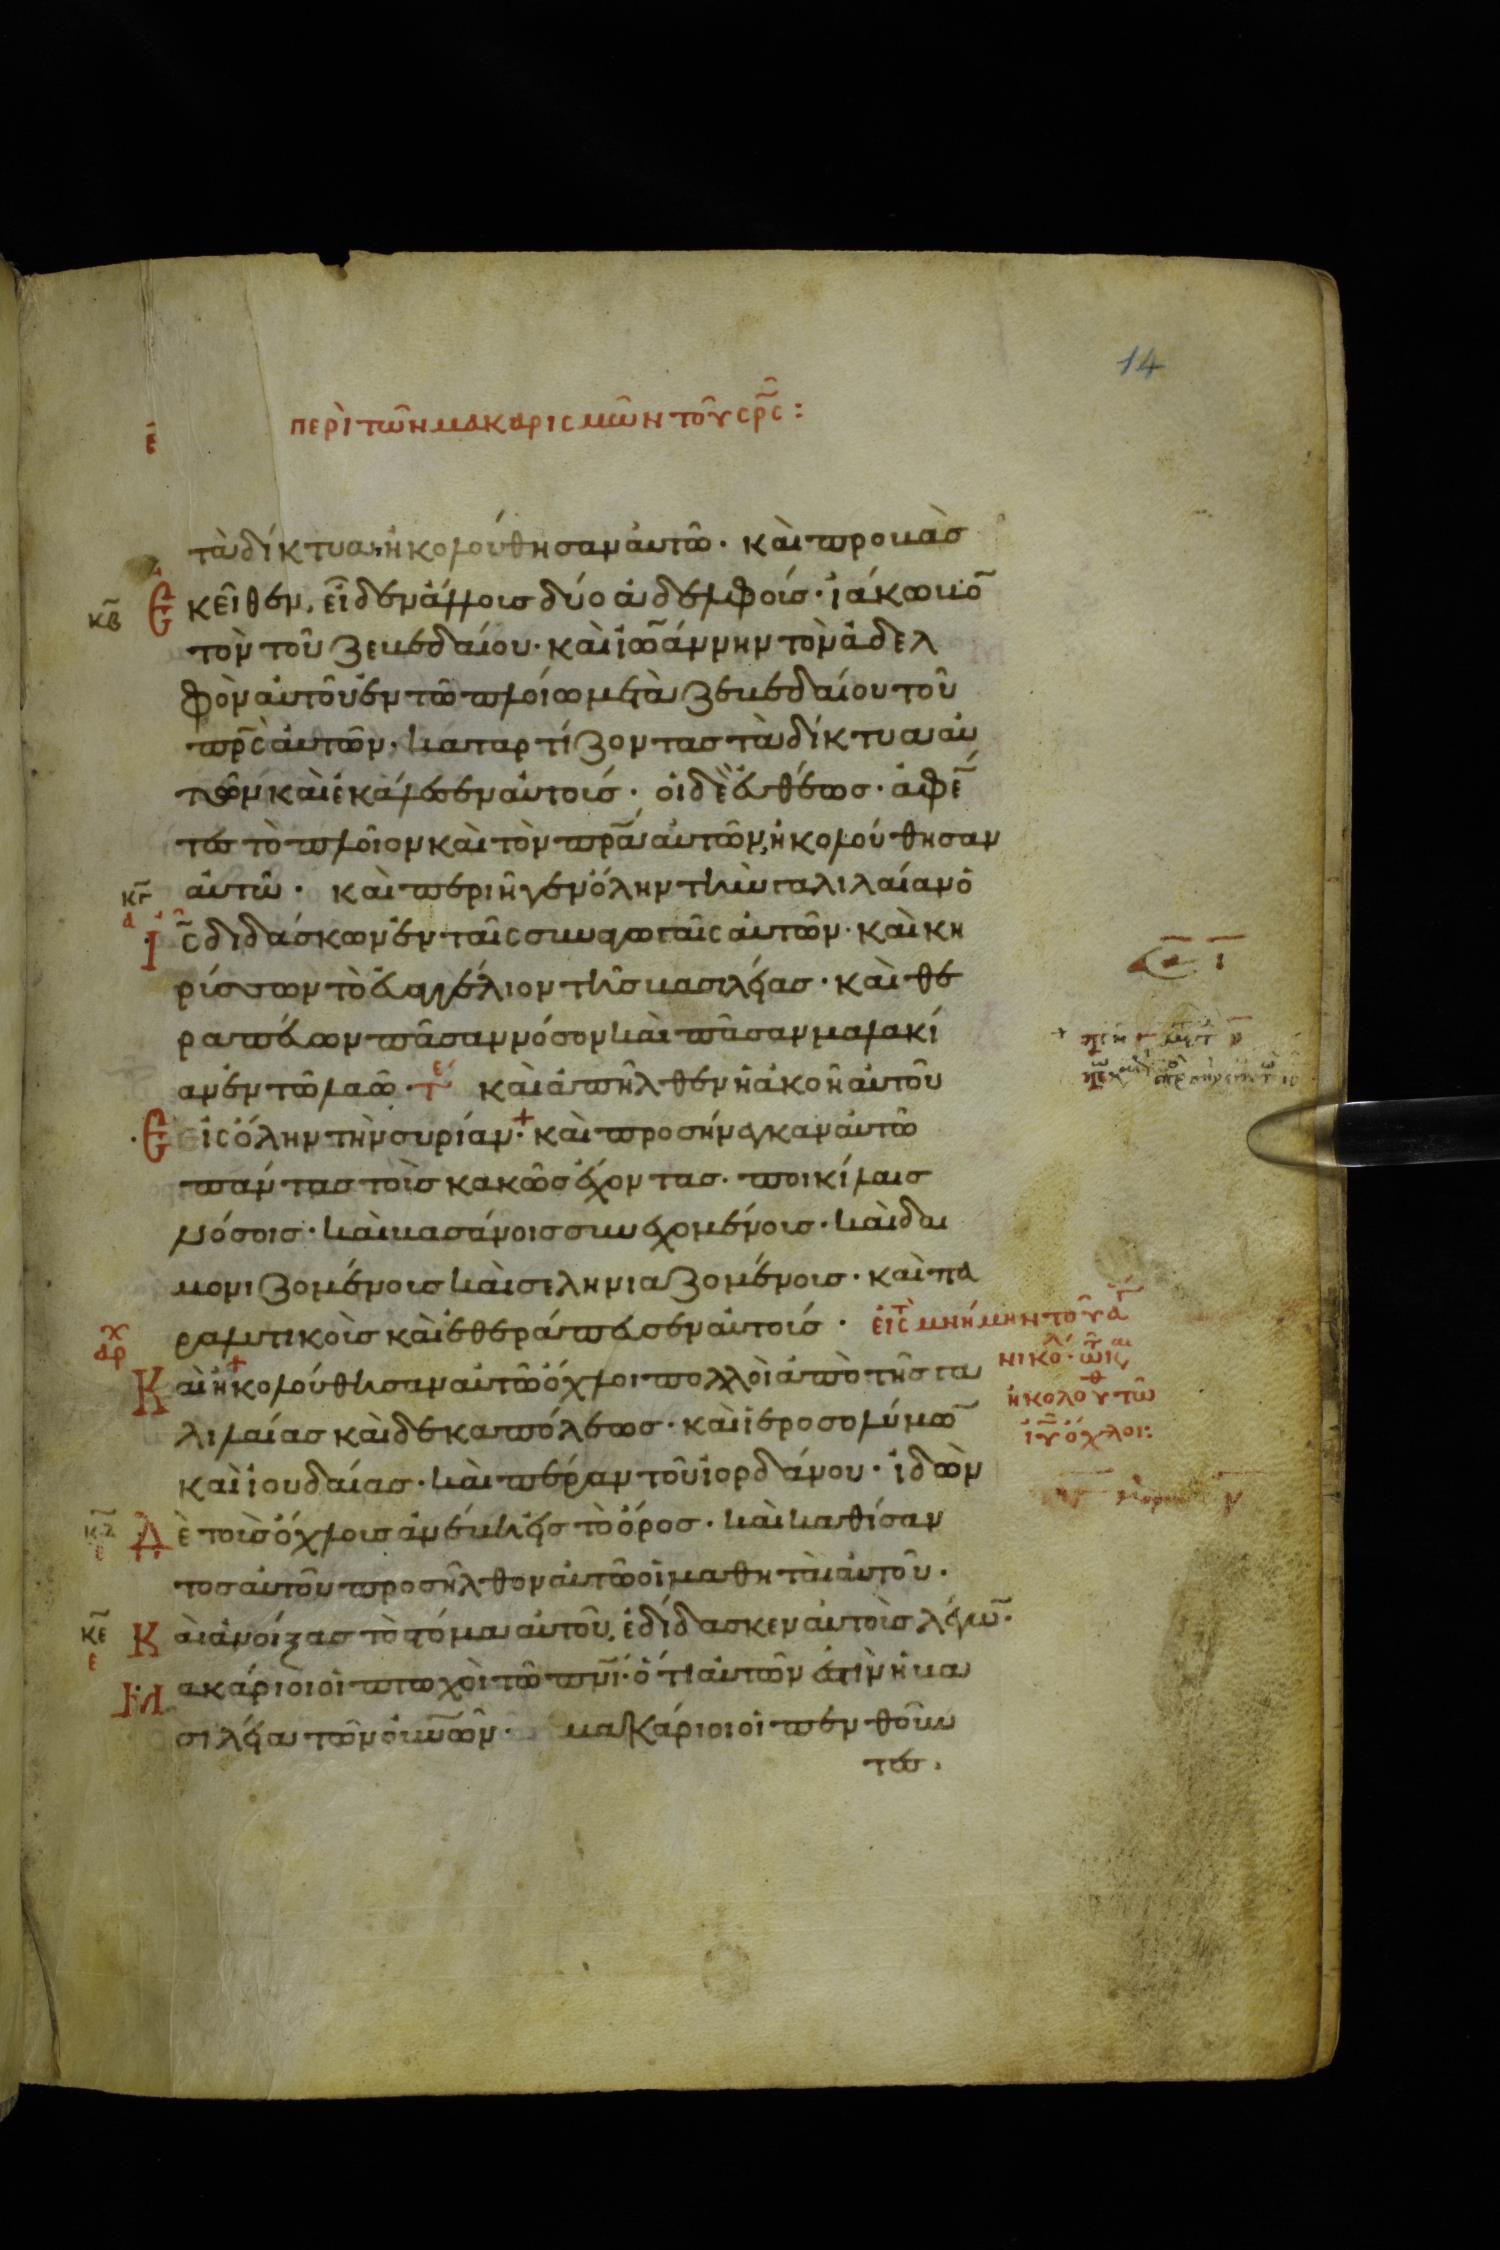 14
ε̄ περὶ τῶν μακαρισμῶν τοῦ σρ̅σ :
τὰ δίκτυα, ἠκολούθησαν αὐτῶ· καὶ προβὰσ
κβ̄ Ἐκεῖθεν, εἶδεν ἄλλουσ δύο ἀδελφούσ· ἰάκωβο̄
τὸν τοῦ ζεβεδαίου· καὶ ἰω̄άννην τὸν ἀδελ
φὸν αὐτοῦ ἐν τῶ πλοίω μετὰ ζεβεδαίου τοῦ
πρ̅σ αὐτῶν, καταρτίζοντασ τὰ δίκτυα αὐ
τῶν καὶ ἐκάλεσεν αὐτούσ· οἱ δὲ εὐθέωσ· ἀφέ̄
τεσ τὸ πλοῖον καὶ τὸν πρ̅α αὐτῶν, ἠκολούθησαν
αὐτῶ· καὶ περιῆγεν ὅλην τὴν γαλιλαίαν ὁ
κγ̄ α
Ἰσ̄ διδάσκων ἐν ταῖσ συναγωγαῖσ αὐτῶν· καὶ κη
ρύσσων τὸ εὐαγγέλιον τῆσ βασιλείασ· καὶ θε
ραπεύων πᾶσαν νόσον καὶ πᾶσαν μαλακί
αν ἐν τῶ λαῶ· καὶ ἀπῆλθεν ἡ ἀκοὴ αὐτοῦ
Εἰσ ὅλην τὴν συρίαν· καὶ προσήνεγκαν αὐτῶ
πάντασ τοὺσ κακῶσ ἔχοντασ· ποικίλαισ
νόσοισ· καὶ βασάνοισ συνεχομένουσ· καὶ δαι
μονιζομένουσ καὶ σεληνιαζομένουσ· καὶ πα
ραλυτικοὺσ καὶ ἐθεράπευσεν αὐτούσ· εἰσ τ μνήμην τοῦ ἁγ
νικο λ· ὦ τ κ αι
Καὶ ἠκολούθησαν αὐτῶ ὄχλοι πολλοὶ ἀπὸ τῆσ γα
ἠκολοὺ θ τῶ
λιλαίασ καὶ δεκαπόλεωσ· καὶ ἱεροσολύμω̄
ἰῦ ὄχλοι:
καὶ ἰουδαίασ· καὶ πέραν τοῦ ἰορδάνου· ἰδὼν
κδ̄ Δὲ τοὺσ ὄχλουσ ἀνέβη εἰσ τὸ ὄροσ· καὶ καθίσαν
τοσ αὐτοῦ προσῆλθον αὐτῶ οἱ μαθηταὶ αὐτοῦ·
κε̄ ε Καὶ ἀνοίξασ τὸ στόμα αὐτοῦ, ἐδίδασκεν αὐτοὺσ λέγω̄·
Μακάριοι οἱ πτωχοὶ τῶ πν̅ι· ὅτι αὐτῶν ἐστὶν ἡ βα
σιλεία τῶν οὐν̅ῶν· μακάριοι οἱ πενθοῦν
τεσ.